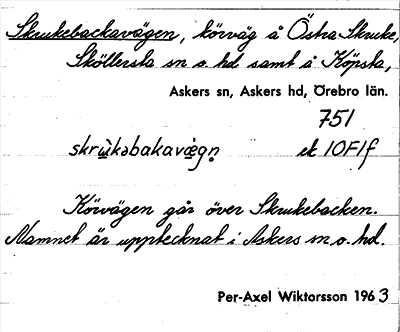 Skrukebackavägen, körväg å Östra Skruke,
Sköllersta sn o. hd samt å Köpsta,
Askers sn, Askers hd, Örebro län.
751
skrùkəbakavæ̀gn̥ ek 10F1f
Körvägen går över Skrukebacken.
Namnet är upptecknat i Askers sn o. hd.
Per-Axel Wiktorsson 1963